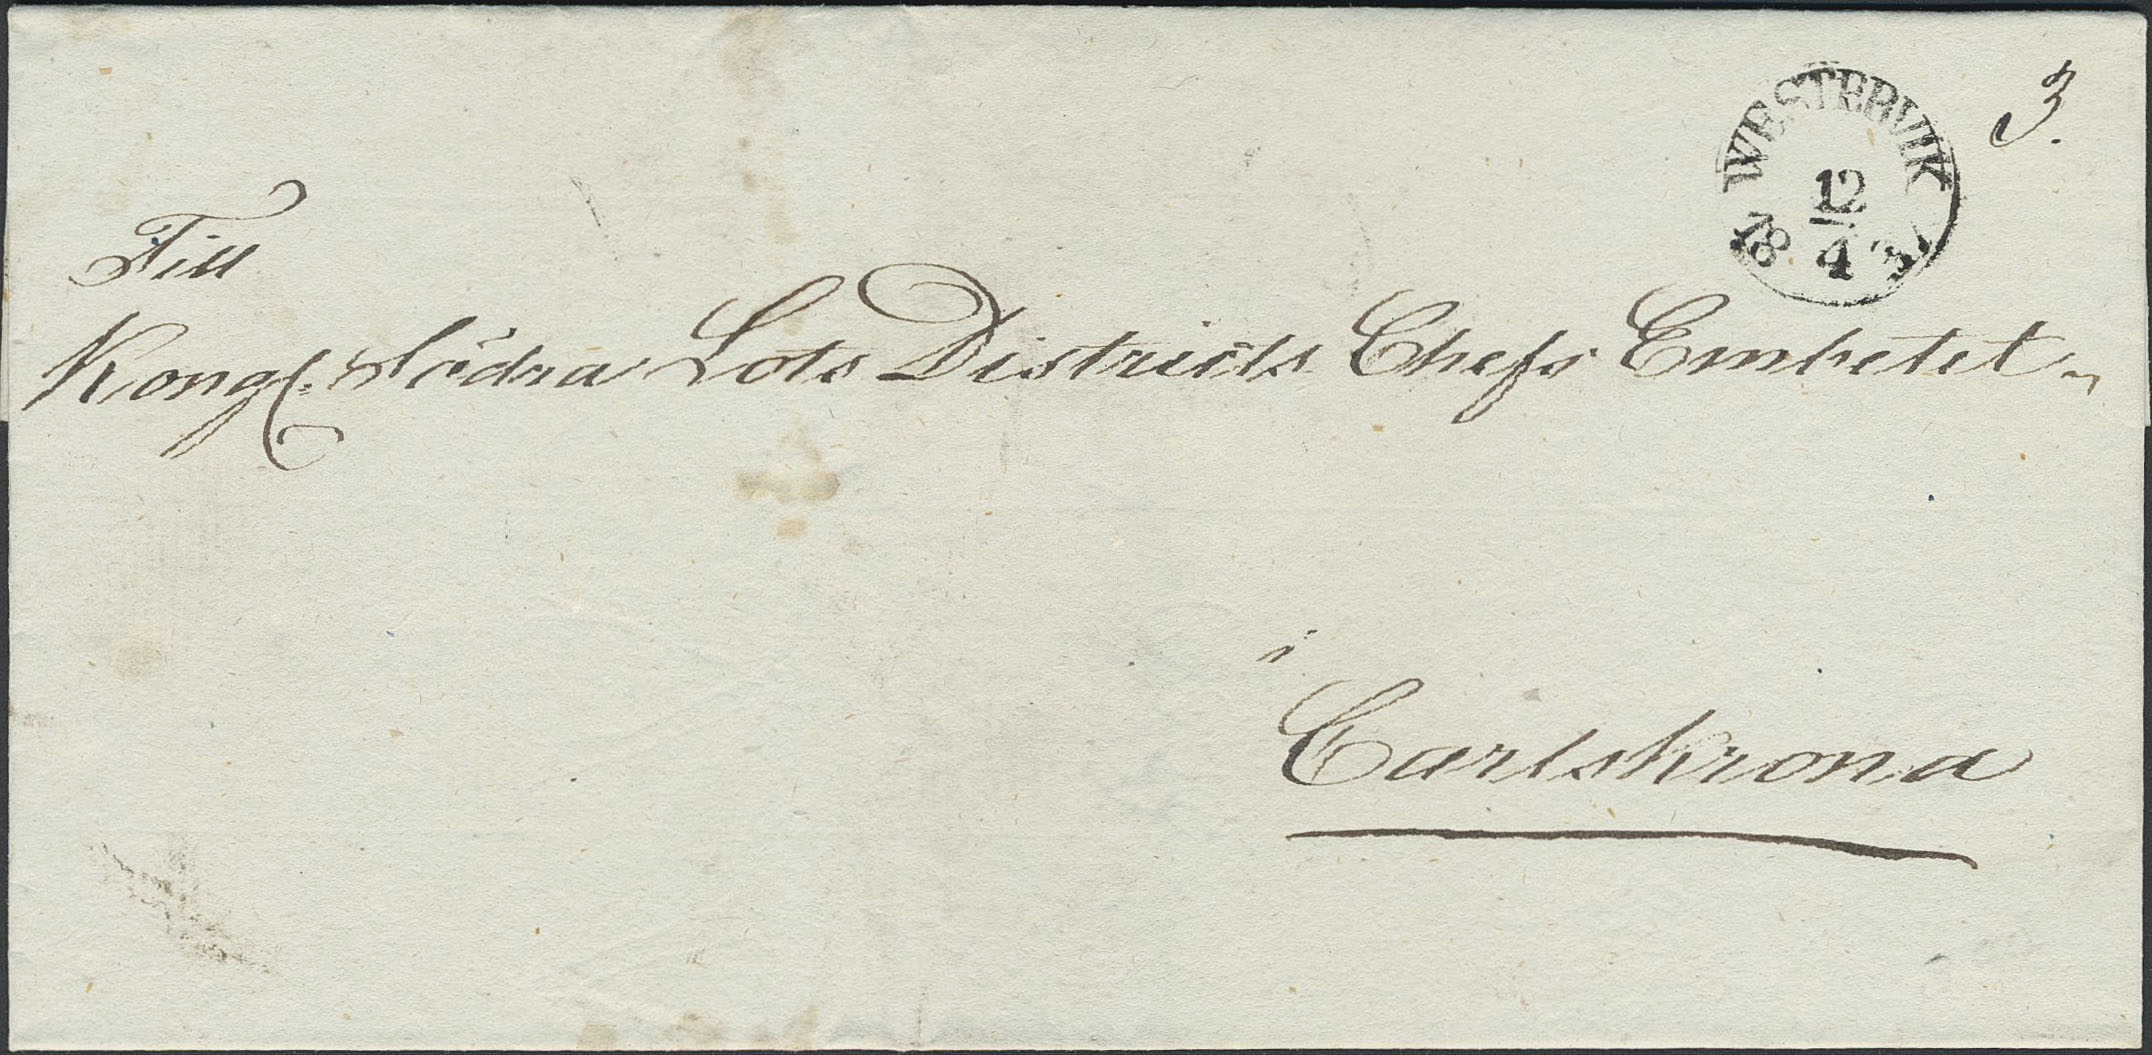 WESTERVIK
12
4
18
3.
Till
Kongl. Södra Lots Districts Chefs Embetet
i
Carlskrona